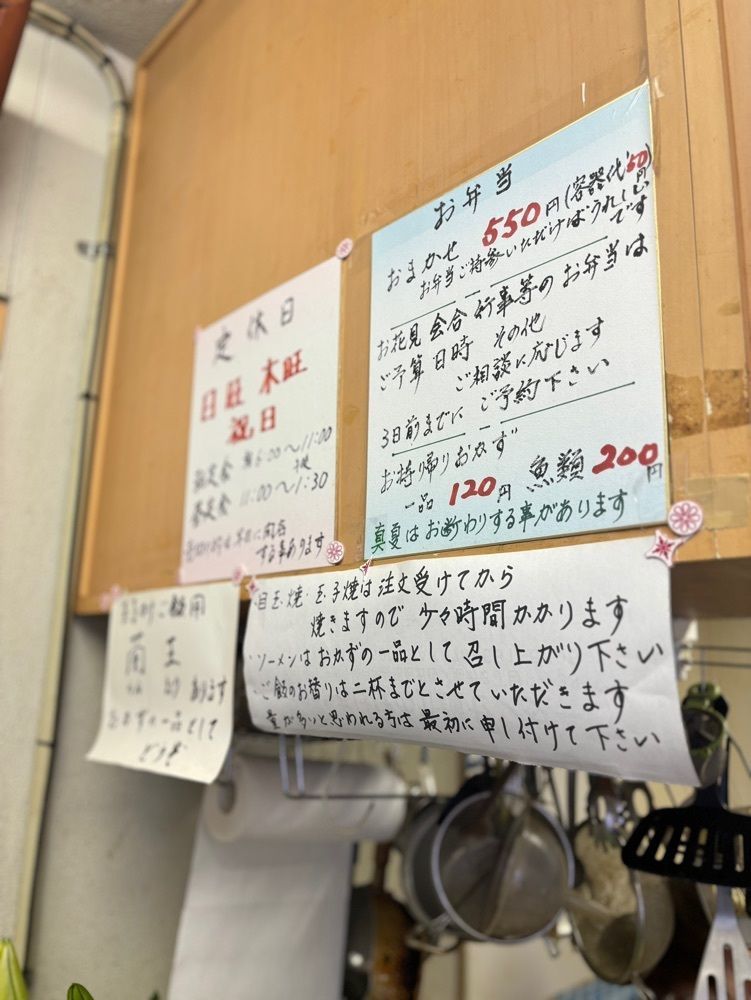 お弁当
おまかせ 550円(容器代50円)
お弁当ご持参いただけばうれしいです
お花見 会合 行事等のお弁当は
ご予算 日時 その他
ご相談に応じます
3日前までに ご予約下さい
お持ち帰りおかず
一品 120円 魚類 200円
真夏はお断わりする事があります
定休日
日旺 木旺
祝日
11:00〜1:30
する事あります
目玉焼・玉子焼は注文受けてから
焼きますので 少々時間かかります
・ソーメンはおかずの一品として召し上がり下さい
・ご飯のお替りは二杯までとさせていただきます
量が多いと思われる方は最初に申し付けて下さい
あります
おかずの一品として
どうぞ